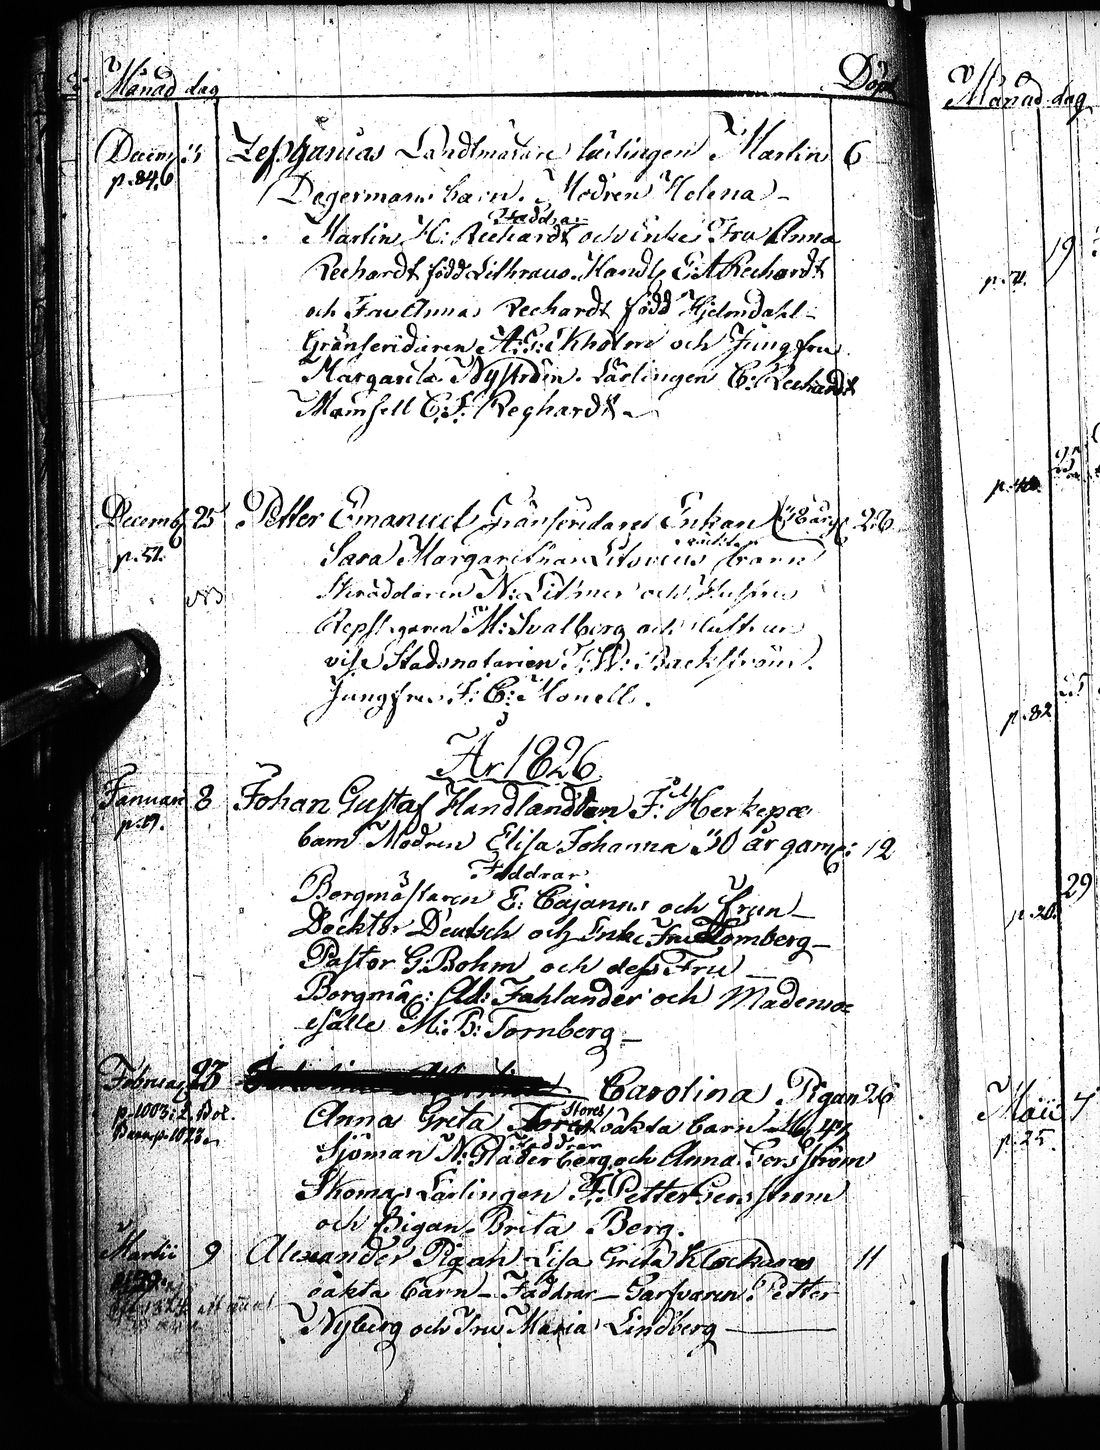 Månad dag Döpt
Decemb 5 Zephanias Landtmätare lärlingen Martin 6
p. 84.
Degermans barn. Modren Helena
Faddrar
Martin H: Rechardt och Enke Fru Anna
Rechardt född Lithraus. Handl: E: A Rechardt
och Fru Anna Rechardt född Hjelmdahl
Gränseridaren A: G: Ekholm och Jungfru
Margareta Nyström. Lärlingen C: Rechardt
Mamsell C: F: Reghardt
Decemb 25 Petter Emanuel Gränseridare Enkan 26
p. 51.
Sara Margaretha oäkta barn
NB Skräddaren N: Litner och Hustru
Repslagaren M: Svalberg och
vise Stadsnotarien F: W: Backström.
Jungfru F: C: Monell.
År 1826
Januari 8 Johan Gustaf Handlanden F: Herkepæ
p. 19.
barn Modren Elisa Johanna 30 år gam: 12
Faddrar
Borgmästaren E: Cajanus och frun
Docktor Deutsch och Enke Fru Lomberg
Pastor G: Bohm och dess Fru
Borgmäs: Ad: Fahlander och Madamoi
sälle M: B: Tornberg
Februay 23 Carolina Pigan 26
p. 1003: 2. Bok.
Anna Greta Flores oäkta barn
Faddrar
Sjöman N: Gläderberg och Anna Forsström
Skomas Lärlingen F: Petter Forsström
och Pigan Brita Berg.
Martii 9 Alexander Pigan Lisa Greta Klockars 11
oäkta barn Faddrar Garfvaren Petter
Nyberg och Fru Maria Lindberg
Månad dag
p. 71. 19
p. 82 25
p. 20. 29
Maii 7
p. 25.